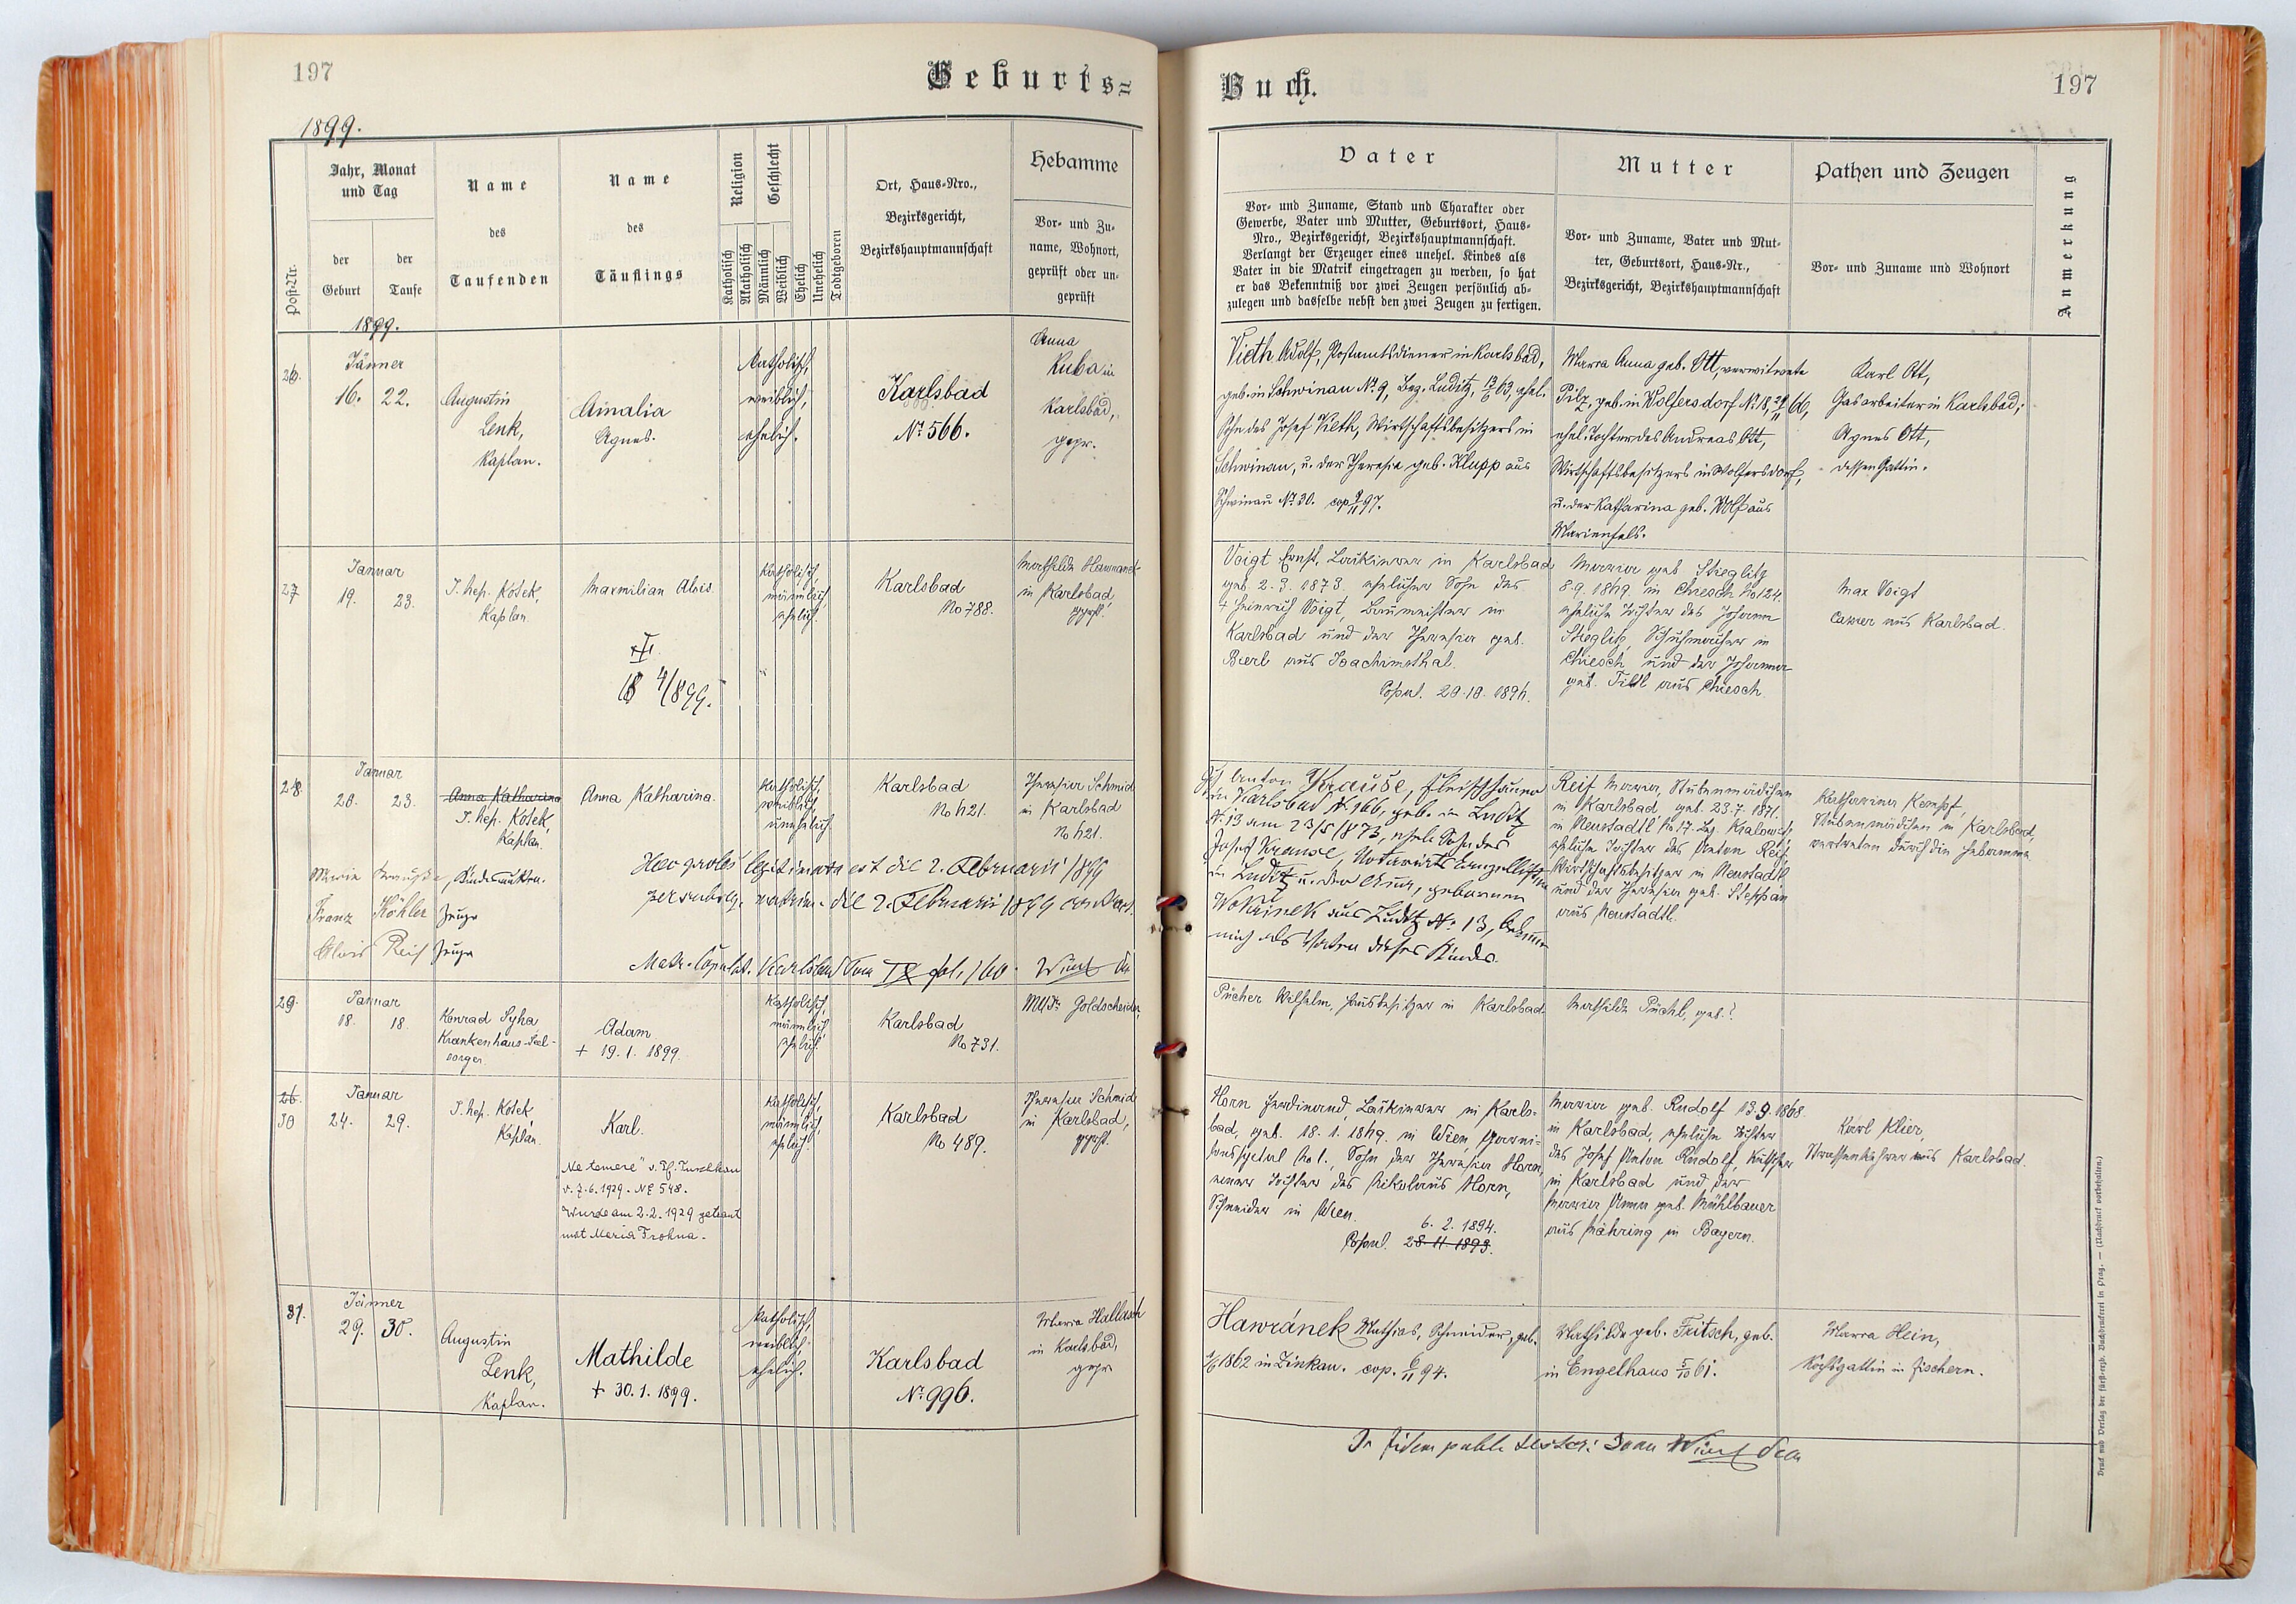 197
Geburts=
1899.
Post-Nr.
Jahr, Monat
und Tag
der
Geburt
der
Taufe
Name
des
Taufenden
Name
des
Täuflings
Religion
Katholisch
Akatholisch
Geschlecht
Männlich
Weiblich
Ehelich
Unehelich
Todtgeboren
Ort, Haus-Nro.,
Bezirksgericht,
Bezirkshauptmannschaft
Hebamme
Vor- und Zu-
name, Wohnort,
geprüft oder un-
geprüft
1899.
26.
Jänner
16. 22.
Augustin
Lenk,
Kaplan.
Amalia
Agnes.
katholisch,
weiblich,
ehelich.
Karlsbad
Nº 566.
Anna
Kuba in
Karlsbad,
gepr.
27
Januar
19. 23.
J. Nep. Kotek,
Kaplan.
Maxmilian Alois.
18 4/899.
Katholisch,
männlich,
ehelich.
Karlsbad
No 788.
Mathilde
in Karlsbad,
geprft.
28.
Januar
20. 23.
Anna Katharina
J. Nep. Kotek,
Kaplan.
Anna Katharina.
Katholisch,
weiblich,
unehelich.
Karlsbad
No 621.
Theresia Schmid
in Karlsbad
No 621.
Maria Krauße, Kindesmutter.
Franz Köhler Zeuge
Alois Reif Zeuge
Haec proles legitimata est die 2. Februarii 1899
per subseq. matrim. die 2. Februarii 1899
Matr. Copulat. Karlsbad Tom IX fol. 160.
29.
Januar
18. 18.
Konrad Syha
Krankenhaus-Seel-
sorger
Adam
+ 19. 1. 1899.
Katholisch,
männlich,
ehelich.
Karlsbad
No 731.
Mth. Goldscheider
26.
30
Januar
24. 29.
J. Nep. Kotek,
Kaplan.
Karl.
"Ne temere" v. Pf.
v. 7. 6. 1929. Nº 548.
Wurde am 2. 2. 1929 getraut
mit Maria Frohna.
Katholisch,
männlich,
ehelich.
Karlsbad
No 489.
Theresia Schmid
in Karlsbad,
geprft.
31.
Jänner
29. 30.
Augustin
Lenk,
Kaplan.
Mathilde
+ 30. 1. 1899.
katholisch,
weiblich,
ehelich.
Karlsbad
Nº 996.
Maria Hallasch
in Karlsbad,
gepr
Buch.
197
Vater
Vor- und Zuname, Stand und Charakter oder
Gewerbe, Vater und Mutter, Geburtsort, Haus-
Nro., Bezirksgericht, Bezirkshauptmannschaft.
Verlangt der Erzeuger eines unehel. Kindes als
Vater in die Matrik eingetragen zu werden, so hat
er das Bekenntniß vor zwei Zeugen persönlich ab-
zulegen und dasselbe nebst den zwei Zeugen zu fertigen.
Mutter
Vor- und Zuname, Vater und Mut-
ter, Geburtsort, Haus-Nr.,
Bezirksgericht, Bezirkshauptmannschaft
Pathen und Zeugen
Vor- und Zuname und Wohnort
Anmerkung
Vieth Adolf, Postamtsdiener in Karlsbad,
geb. in Schwinau Nº 9, Bez. Luditz, 63, ehel.
Sohn des Josef Vieth, Wirtschaftsbesitzers in
Schwinau, u. der Theresia geb. Klupp aus
Schwinau Nº 30. cop. 97.
Maria Anna geb. Ott, verwitwete
Pilz, geb. in Wolfersdorf Nº 18, 66,
ehel. Tochter des Andreas Ott,
Wirtschaftsbesitzers in Wolfersdorf,
u. der Katharina geb. Wolf aus
Marienfels.
Karl Ott,
Gasarbeiter in Karlsbad;
Agnes Ott,
dessen Gattin.
Voigt Ernst, Lakierer in Karlsbad
geb. 2. 3. 1873 ehelicher Sohn des
+ Heinrich Voigt, Baumeister in
Karlsbad und der Theresia geb.
Bierl aus Joachimsthal.
Copul. 20. 10. 1896.
Maria geb. Stieglitz
8. 9. 1869 in Chiesch No 124.
eheliche Tochter des Johann
Stieglitz, Schuhmacher in
Chiesch und der Johanna
geb. Tittl aus Chiesch.
Max Voigt
aus Karlsbad.
Ich Anton Krauße, Fleischhauer
in Karlsbad Nº 166, geb. in Luditz
Nº 13 am 23/5 1873, ehel. Sohn des
Josef Krauße, Notariats
in Luditz u. der Anna, geborenen
Wokřinek aus Luditz Nº 13, bekenne
mich als Vater dieses Kindes.
Reif Maria, Stubenmädchen
in Karlsbad, geb. 23. 7. 1871.
in Neustadtl No 17. Bez. Kralowitz
eheliche Tochter des Anton Reif,
Wirtschaftsbesitzer in Neustadtl
und der Theresia geb. Steppan
aus Neustadtl.
Katharina Kempf,
Stubenmädchen in Karlsbad,
vertreten durch die Hebamme.
Pücher Wilhelm, Hausbesitzer in Karlsbad.
Mathilde Püchl, geb.?
Horn Ferdinand, Lakierer in Karls-
bad, geb. 18. 1. 1869. in Wien, Garni-
sonsspital No 1, Sohn der Theresia Horn,
einer Tochter des Nikolaus Horn,
Schneider in Wien.
6. 2. 1894.
Copul. 28. 11. 1893.
Maria geb. Rudolf 13. 9. 1868.
in Karlsbad, eheliche Tochter
des Josef Anton Rudolf, Kutscher
in Karlsbad und der
Maria Anna geb. Mühlbauer
aus Mähring in Bayern.
Karl Klier,
Straßenkehrer aus Karlsbad.
Hawránek Mathias, Schneider, geb.
1862 in Zinkau. cop. 94.
Mathilde geb. Fritsch, geb.
in Engelhaus 61.
Maria Hein,
Kochsgattin in Fischern.
Druck und Verlag der fürst-erzb. Buchdruckerei in Prag. — (Nachdruck vorbehalten.)